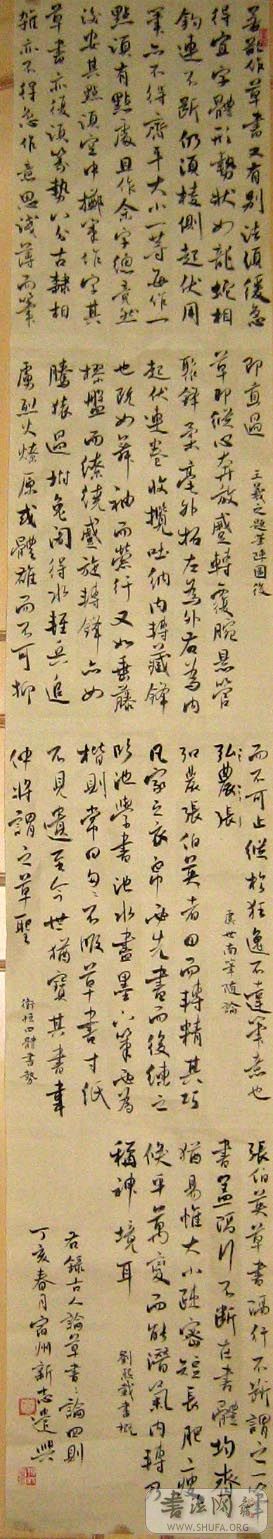 若欲作草書又有别法須緩急
得宜字體形勢狀如龍蛇相
鈎連不斷仍須稜側起伏用
筆亦不得齊平大小一等每作一
點須有點處且作余字總竟然
後安其點須空中擲筆作字其
草書亦復須篆勢八分古隸相
雜亦不得急作意思淺薄而筆
即直過
王羲之題筆陣圖後
草即縱心奔放蹙轉覆腕懸管
聚鋒柔毫外拓左為外右為内
起伏連卷收攬吐納内轉藏鋒
也既如舞袖而縈行又如垂藤
樛盤而繚繞蹙旋轉鋒亦如
騰猿過樹兔得水輕兵追
虜烈火燎原或體雄而不可抑
而不可止縱於狂逸不違筆意也
虞世南筆髓論
弘農張
弘農張伯英者因而轉精其巧
凡家之衣帛必先書而後練之
臨池學書池水盡墨下筆必為
楷則常曰匆匆不暇草書寸紙
不見遺至今世猶寶其書韋
仲將謂之草聖
衛恒四體書勢
張伯英草書隔行不斷謂之一筆
書蓋隔行不斷在書體均齊
猶易惟大小疏密短長肥瘦
倏乎萬變而能潛氣内轉乃
稱神境耳
劉熙載書概
右錄古人論草書之論四則
丁亥春月宿州新志遣興
書法网
WWW.SHUFA.ORG